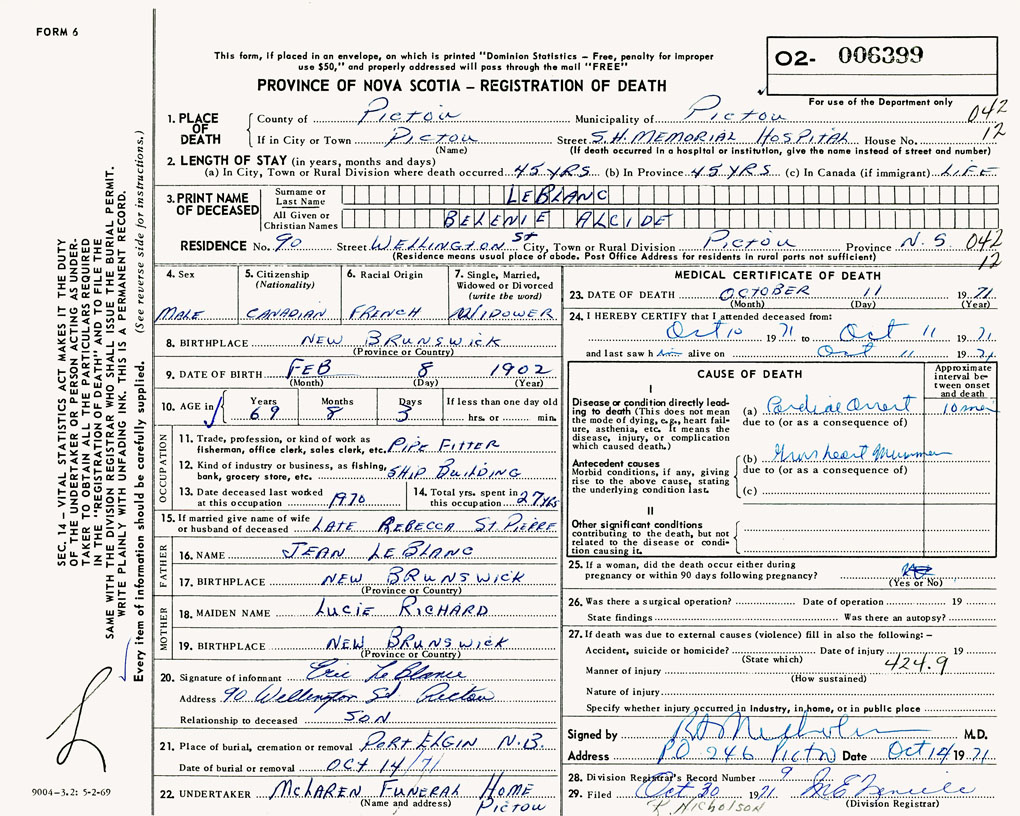 FORM 6
This form, if placed in an envelope, on which is printed "Dominion Statistics – Free, penalty for improper
use $50," and properly addressed will pass through the mail "FREE"
PROVINCE OF NOVA SCOTIA – REGISTRATION OF DEATH
O2- 006399
For use of the Department only
1. PLACE OF DEATH
County of Pictou Municipality of Pictou 042
If in City or Town Pictou Street S.H. MEMORIAL HOSPITAL House No. 12
(Name) (If death occurred in a hospital or institution, give the name instead of street and number)
2. LENGTH OF STAY (in years, months and days)
(a) In City, Town or Rural Division where death occurred 45 YRS (b) In Province 45 YRS (c) In Canada (if immigrant) LIFE
3. PRINT NAME OF DECEASED
Surname or Last Name LEBLANC
All Given or Christian Names BELENIE ALCIDE
RESIDENCE No. 90 Street WELLINGTON St City, Town or Rural Division Pictou Province N.S. 042
(Residence means usual place of abode. Post Office Address for residents in rural parts not sufficient) 12
4. Sex
MALE
5. Citizenship
(Nationality)
CANADIAN
6. Racial Origin
FRENCH
7. Single, Married,
Widowed or Divorced
(write the word)
WIDOWER
8. BIRTHPLACE NEW BRUNSWICK
(Province or Country)
9. DATE OF BIRTH FEB 8 1902
(Month) (Day) (Year)
10. AGE in
Years Months Days If less than one day old
69 8 3 hrs. or min.
OCCUPATION
11. Trade, profession, or kind of work as
fisherman, office clerk, sales clerk, etc. PIPE FITTER
12. Kind of industry or business, as fishing,
bank, grocery store, etc. SHIP BUILDING
13. Date deceased last worked
at this occupation 1970
14. Total yrs. spent in
this occupation 27 yrs
15. If married give name of wife
or husband of deceased LATE REBECCA ST PIERRE
FATHER
16. NAME JEAN LEBLANC
17. BIRTHPLACE NEW BRUNSWICK
(Province or Country)
MOTHER
18. MAIDEN NAME LUCIE RICHARD
19. BIRTHPLACE NEW BRUNSWICK
(Province or Country)
20. Signature of informant Eric LeBlanc
Address 90 Wellington St Pictou
Relationship to deceased SON
21. Place of burial, cremation or removal PORT ELGIN N.B.
Date of burial or removal OCT 14/71
22. UNDERTAKER McLAREN FUNERAL HOME
(Name and address) PICTOU
MEDICAL CERTIFICATE OF DEATH
23. DATE OF DEATH OCTOBER 11 1971
(Month) (Day) (Year)
24. I HEREBY CERTIFY that I attended deceased from:
Oct 10 1971 to Oct 11 1971
and last saw him alive on Oct 11 1971
CAUSE OF DEATH
Approximate
interval be-
tween onset
and death
I
Disease or condition directly lead-
ing to death (This does not mean
the mode of dying, e.g., heart fail-
ure, asthenia, etc. It means the
disease, injury, or complication
which caused death.)
(a) Cardiac Arrest 10 min
due to (or as a consequence of)
Antecedent causes
Morbid conditions, if any, giving
rise to the above cause, stating
the underlying condition last.
(b) heart
due to (or as a consequence of)
(c)
II
Other significant conditions
contributing to the death, but not
related to the disease or condi-
tion causing it.
25. If a woman, did the death occur either during
pregnancy or within 90 days following pregnancy?
(Yes or No)
26. Was there a surgical operation? Date of operation 19
State findings Was there an autopsy?
27. If death was due to external causes (violence) fill in also the following: –
Accident, suicide or homicide? Date of injury 19
(State which) 424.9
Manner of injury
(How sustained)
Nature of injury
Specify whether injury occurred in industry, in home, or in public place
Signed by M.D.
Address P.O. 246 Pictou Date Oct 14 1971
28. Division Registrar's Record Number 9
29. Filed Oct 30 1971
(Division Registrar)
R. NICHOLSON
SEC. 14 – VITAL STATISTICS ACT MAKES IT THE DUTY
OF THE UNDERTAKER OR PERSON ACTING AS UNDER-
TAKER TO OBTAIN ALL THE PARTICULARS REQUIRED
IN THE "REGISTRATION OF DEATH" AND TO FILE THE
SAME WITH THE DIVISION REGISTRAR WHO SHALL ISSUE THE BURIAL PERMIT.
WRITE PLAINLY WITH UNFADING INK. THIS IS A PERMANENT RECORD.
Every item of information should be carefully supplied. (See reverse side for instructions.)
9004-3.2: 5-2-69